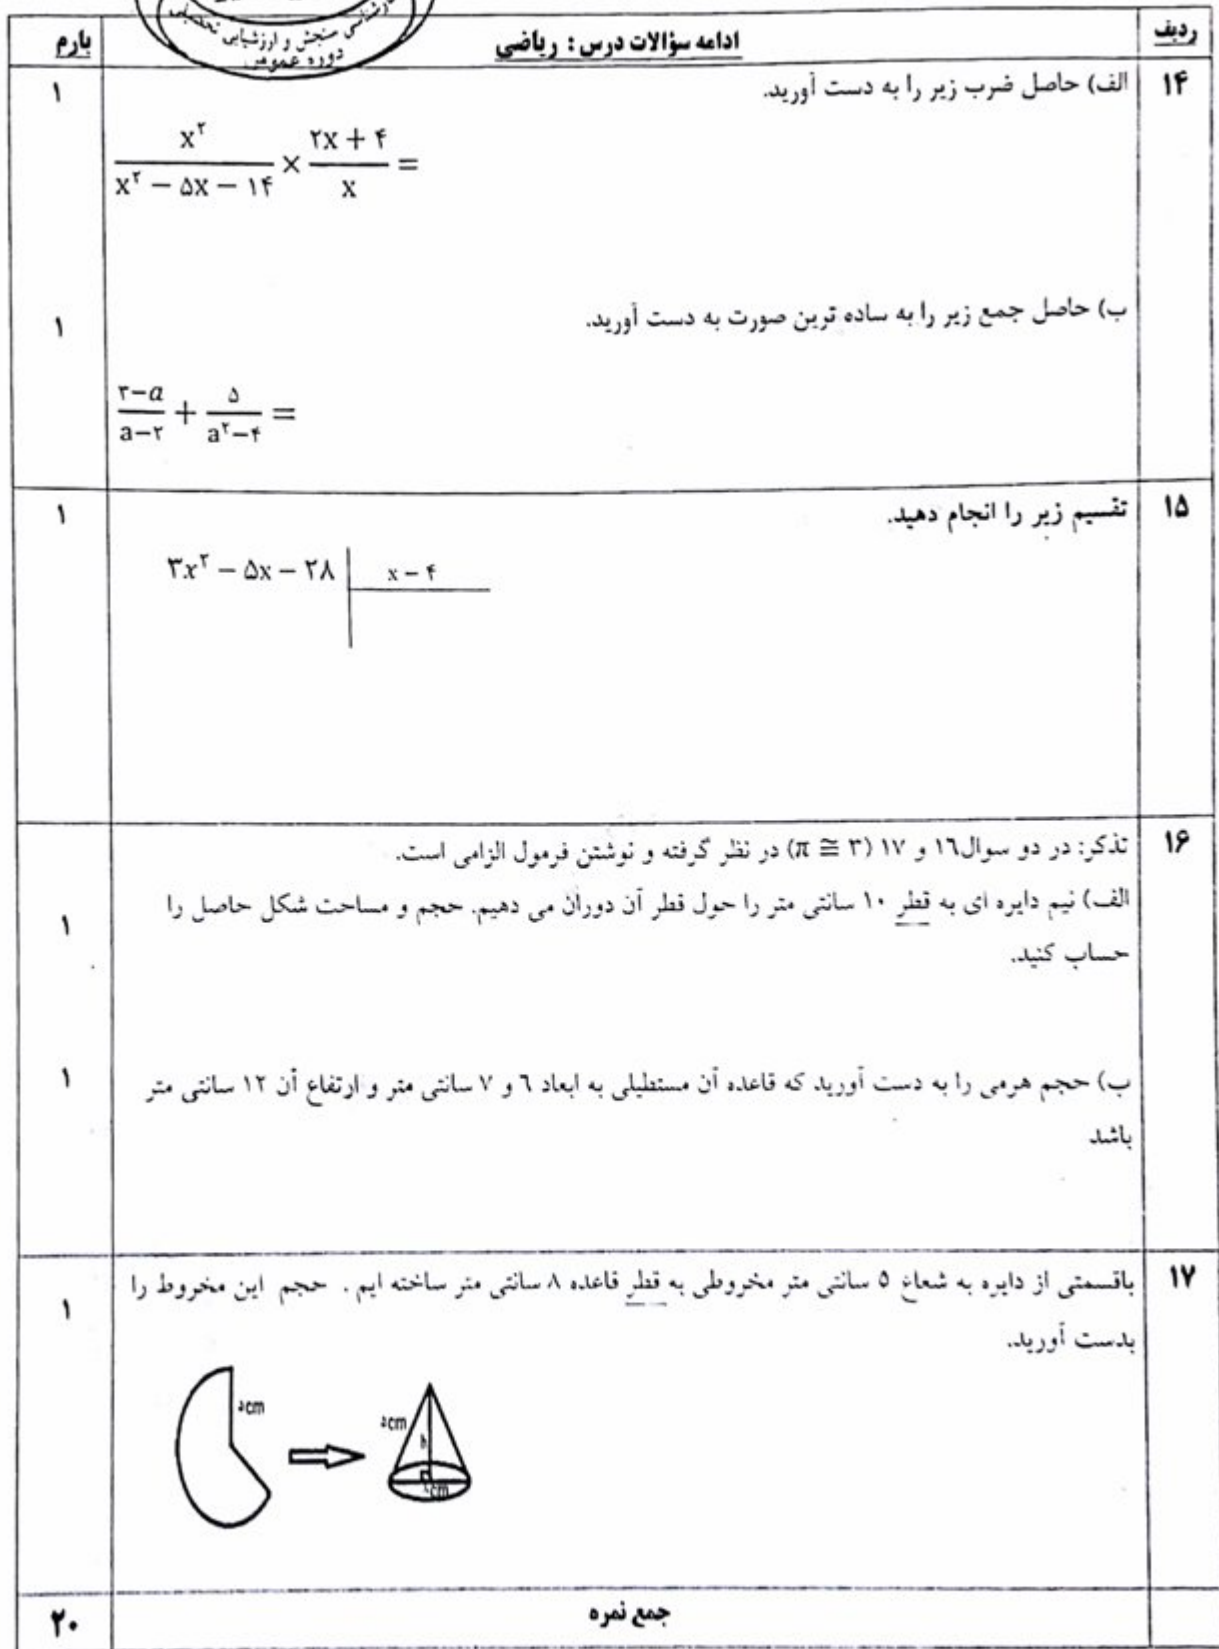 کارشناسی سنجش و ارزشیابی تحصیلی
دوره عمومی
ردیف ادامه سؤالات درس : ریاضی بارم
۱۴ الف) حاصل ضرب زیر را به دست آورید. ۱
x^۲ / (x^۲ − ۵x − ۱۴) × (۲x + ۴) / x =
ب) حاصل جمع زیر را به ساده ترین صورت به دست آورید. ۱
(۳−a) / (a−۲) + ۵ / (a^۲−۴) =
۱۵ تقسیم زیر را انجام دهید. ۱
۳x^۲ − ۵x − ۲۸ | x − ۴
۱۶ تذکر: در دو سوال۱۶ و ۱۷ (π ≅ ۳) در نظر گرفته و نوشتن فرمول الزامی است.
الف) نیم دایره ای به قطر ۱۰ سانتی متر را حول قطر آن دوران می دهیم. حجم و مساحت شکل حاصل را ۱
حساب کنید.
ب) حجم هرمی را به دست آورید که قاعده آن مستطیلی به ابعاد ۶ و ۷ سانتی متر و ارتفاع آن ۱۲ سانتی متر ۱
باشد
۱۷ باقسمتی از دایره به شعاع ۵ سانتی متر مخروطی به قطر قاعده ۸ سانتی متر ساخته ایم . حجم این مخروط را ۱
بدست آورید.
۵cm
۵cm
h
cm
جمع نمره ۲۰